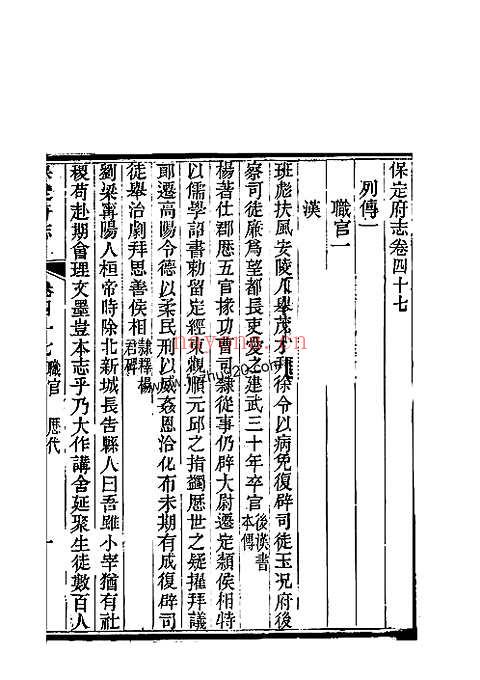 保定府志卷四十七
列傳一
職官一
漢
班彪扶風安陵人舉茂才拜徐令以病免復辟司徒玉況府後
察司徒廉爲望都長吏民愛之建武三十年卒官後漢書本傳
楊著仕郡歷五官掾功曹司隸從事仍辟大尉遷定潁侯相特
以儒學詔書勅留定經東觀順元邱之指蠲歷世之疑擢拜議
郎遷高陽令德以柔民刑以威姦恩洽化布未期有成復辟司
徒舉治劇拜思善侯相隸釋楊君碑
劉梁甯陽人桓帝時除北新城長告縣人曰吾雖小宰猶有社
稷苟赴期會理文墨豈本志乎乃大作講舍延聚生徒數百人
卷四十七 職官 歷代 一
nayona.cn
www.shu020.com